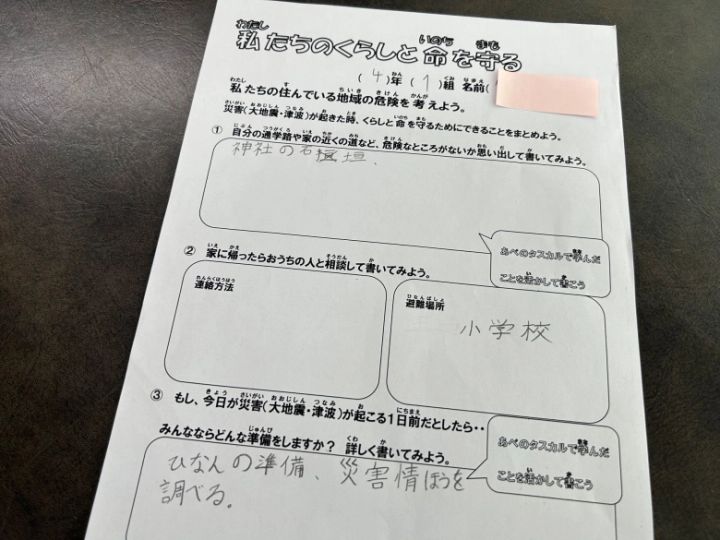 私たちのくらしと命を守る
(4)年(1)組 名前(
私たちの住んでいる地域の危険を考えよう。
災害(大地震・津波)が起きた時、くらしと命を守るためにできることをまとめよう。
① 自分の通学路や家の近くの道など、危険なところがないか思い出して書いてみよう。
神社の石垣.
あべのタスカルで学んだ
ことを活かして書こう
② 家に帰ったらおうちの人と相談して書いてみよう。
連絡方法
避難場所
小学校
③ もし、今日が災害(大地震・津波)が起こる1日前だとしたら・・
みんなならどんな準備をしますか? 詳しく書いてみよう。
あべのタスカルで学んだ
ことを活かして書こう
ひなんの準備、災害情ほうを
調べる。